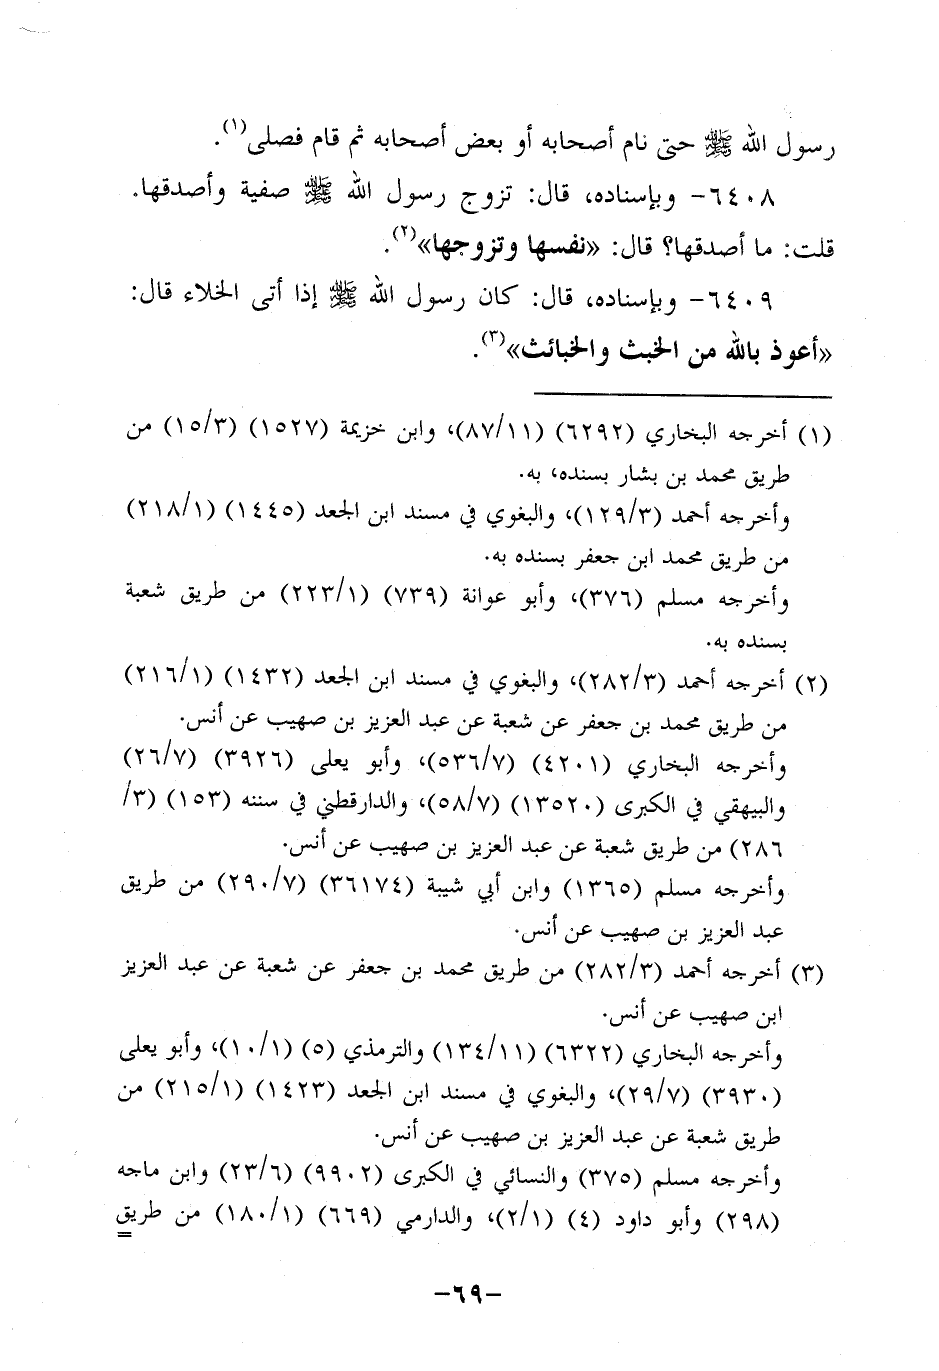 رسول الله ﷺ حتى نام أصحابه أو بعض أصحابه ثم قام فصلى(١).
٦٤٠٨- وبإسناده، قال: تزوج رسول الله ﷺ صفية وأصدقها.
قلت: ما أصدقها؟ قال: «نفسها وتزوجها»(٢).
٦٤٠٩- وبإسناده، قال: كان رسول الله ﷺ إذا أتى الخلاء قال:
«أعوذ بالله من الخبث والخبائث»(٣).
(١) أخرجه البخاري (٦٢٩٢) (٨٧/١١)، وابن خزيمة (١٥٢٧) (١٥/٣) من
طريق محمد بن بشار بسنده، به.
وأخرجه أحمد (١٢٩/٣)، والبغوي في مسند ابن الجعد (١٤٤٥) (٢١٨/١)
من طريق محمد ابن جعفر بسنده به.
وأخرجه مسلم (٣٧٦)، وأبو عوانة (٧٣٩) (٢٢٣/١) من طريق شعبة
بسنده به.
(٢) أخرجه أحمد (٢٨٢/٣)، والبغوي في مسند ابن الجعد (١٤٣٢) (٢١٦/١)
من طريق محمد بن جعفر عن شعبة عن عبد العزيز بن صهيب عن أنس.
وأخرجه البخاري (٤٢٠١) (٥٣٦/٧)، وأبو يعلى (٣٩٢٦) (٢٦/٧)
والبيهقي في الكبرى (١٣٥٢٠) (٥٨/٧)، والدارقطني في سننه (١٥٣) (٣/
٢٨٦) من طريق شعبة عن عبد العزيز بن صهيب عن أنس.
وأخرجه مسلم (١٣٦٥) وابن أبي شيبة (٣٦١٧٤) (٢٩٠/٧) من طريق
عبد العزيز بن صهيب عن أنس.
(٣) أخرجه أحمد (٢٨٢/٣) من طريق محمد بن جعفر عن شعبة عن عبد العزيز
ابن صهيب عن أنس.
وأخرجه البخاري (٦٣٢٢) (١٣٤/١١) والترمذي (٥) (١٠/١)، وأبو يعلى
(٣٩٣٠) (٢٩/٧)، والبغوي في مسند ابن الجعد (١٤٢٣) (٢١٥/١) من
طريق شعبة عن عبد العزيز بن صهيب عن أنس.
وأخرجه مسلم (٣٧٥) والنسائي في الكبرى (٩٩٠٢) (٢٣/٦) وابن ماجه
(٢٩٨) وأبو داود (٤) (٢/١)، والدارمي (٦٦٩) (١٨٠/١) من طريق
=
-٦٩-